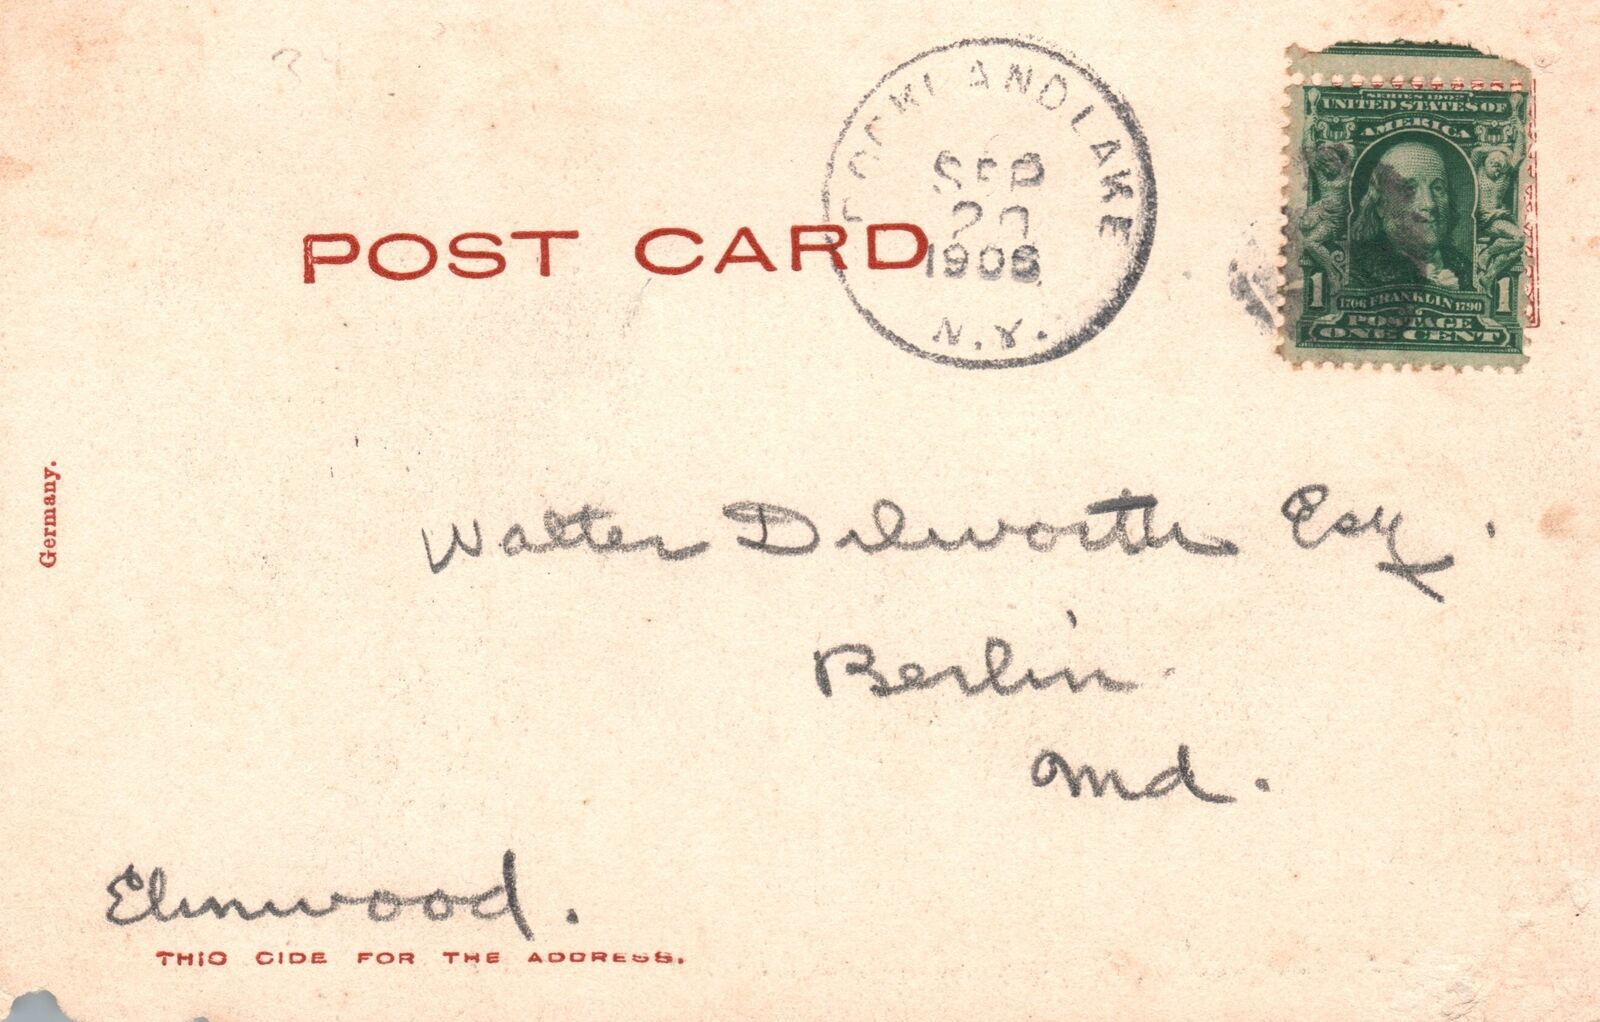 34
ROCKLAND LAKE
SEP
1906
N.Y.
SERIES 1902
UNITED STATES OF
AMERICA
1 1706 FRANKLIN 1790 1
POSTAGE
ONE CENT
POST CARD
Germany.
Walter Dilworth Esq.
Berlin
Md.
Elmwood.
THIS SIDE FOR THE ADDRESS.